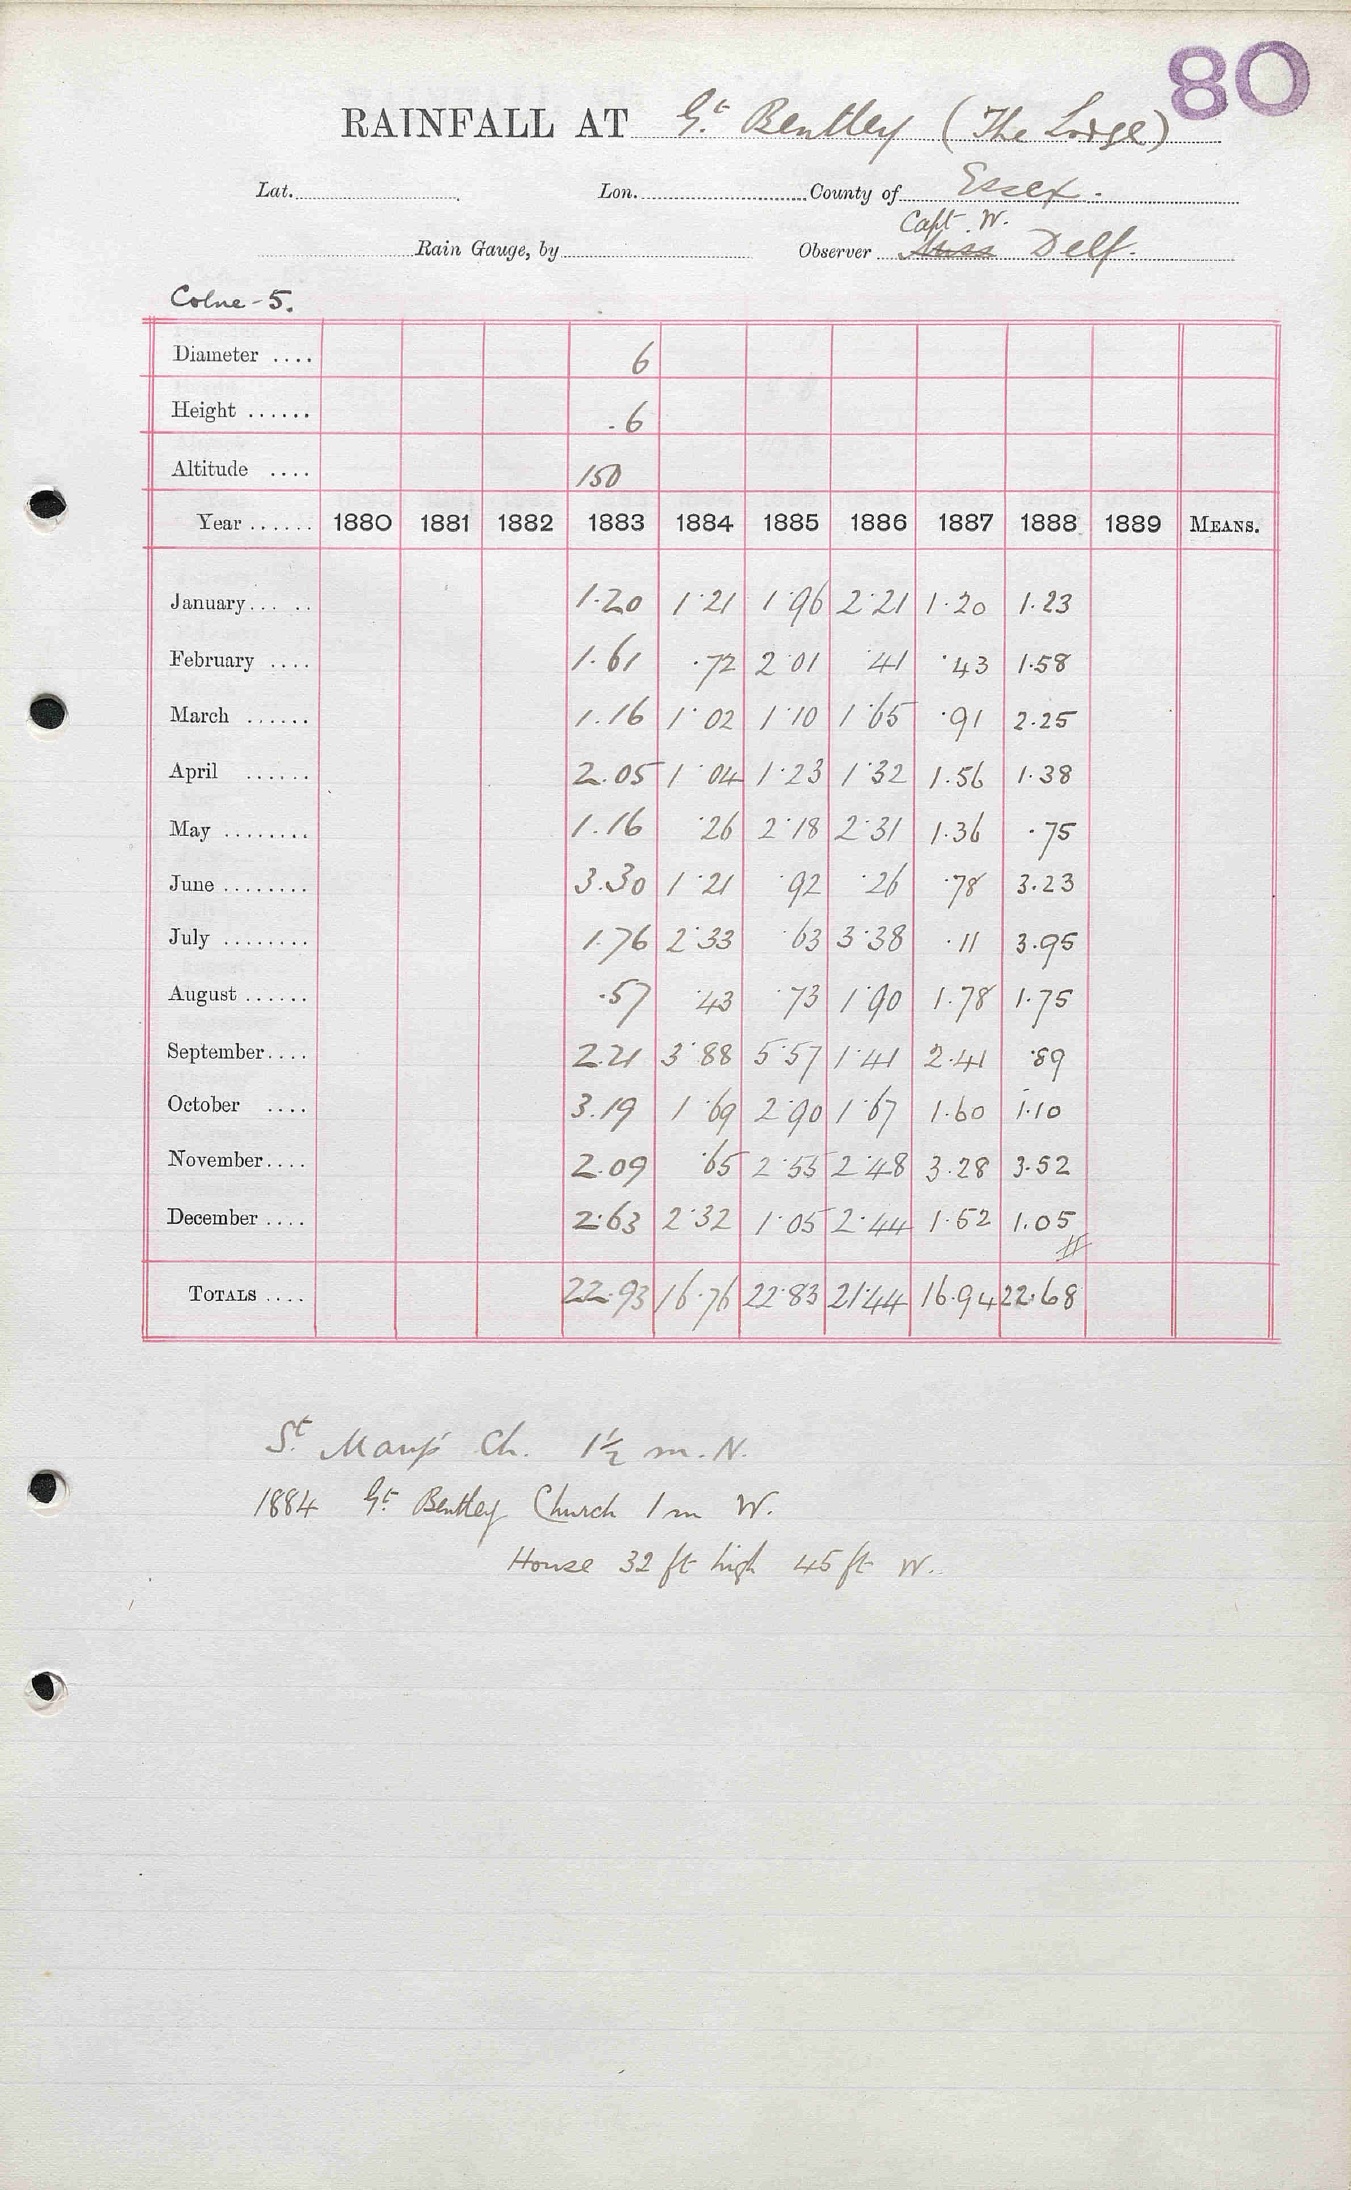 80
RAINFALL AT Gt. Bentley (The Lodge)
Lat. Lon. County of Essex.
Capt. W.
Rain Gauge, by Observer Miss Delf.
Colne - 5.
Diameter .... 6
Height ...... .6
Altitude .... 150
Year ...... 1880 1881 1882 1883 1884 1885 1886 1887 1888 1889 MEANS.
January... .. 1.20 1.21 1.96 2.21 1.20 1.23
February .... 1.61 .72 2.01 .41 .43 1.58
March ...... 1.16 1.02 1.10 1.65 .91 2.25
April ...... 2.05 1.04 1.23 1.32 1.56 1.38
May ........ 1.16 .26 2.18 2.31 1.36 .75
June ........ 3.30 1.21 .92 .26 .78 3.23
July ........ 1.76 2.33 .63 3.38 .11 3.95
August ...... .57 .43 .73 1.90 1.78 1.75
September.... 2.21 3.88 5.57 1.41 2.41 .89
October .... 3.19 1.69 2.90 1.67 1.60 1.10
November.... 2.09 .65 2.55 2.48 3.28 3.52
December .... 2.63 2.32 1.05 2.44 1.52 1.05
TOTALS .... 22.93 16.76 22.83 21.44 16.94 22.68
St. Mary's Ch. 1½ m. N.
1884 Gt. Bentley Church 1 m W.
House 32 ft high 45 ft W.